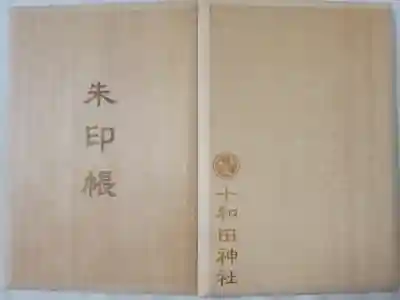 朱印帳
十和田神社